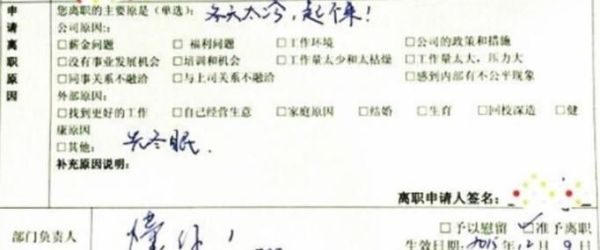 申请离职原因
您离职的主要原是(单选): 冬天太冷,起不来!
公司原因:
□薪金问题 □福利问题 □工作环境 □公司的政策和措施
□没有事业发展机会 □培训和机会 □工作量太少和太枯燥 □工作量太大,压力大
□同事关系不融洽 □与上司关系不融洽 □感到内部有不公平现象
外部原因:
□找到更好的工作 □自己经营生意 □家庭原因 □结婚 □生育 □回校深造 □健
康原因
□其他: 去冬眠.
补充原因说明:
离职申请人签名:
部门负责人
□予以慰留 □准予离职
生效日期: 2015.12. 日